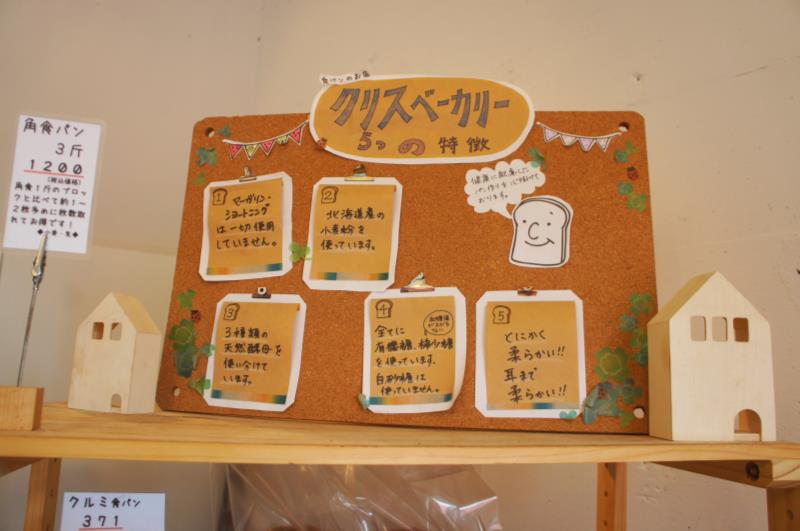 食パンのお店
クリスベーカリー
5つの特徴
健康に配慮した
パン作りを心掛けて
おります。
1
マーガリン・
ショートニング
は一切使用
していません。
2
北海道産の
小麦粉を
使っています。
3
3種類の
天然酵母を
使い分けて
います。
4
血糖値
が上がら
ない
全てに
有機糖、
を使っています。
白砂糖は
使っていません。
5
とにかく
柔らかい!!
耳まで
柔らかい!!
角食パン
3斤
1200
(税込価格)
角食1斤のブロッ
クと比べて約1〜
2枚多めに枚数取
れてお得です!
◆小麦・乳◆
クルミ食パン
371